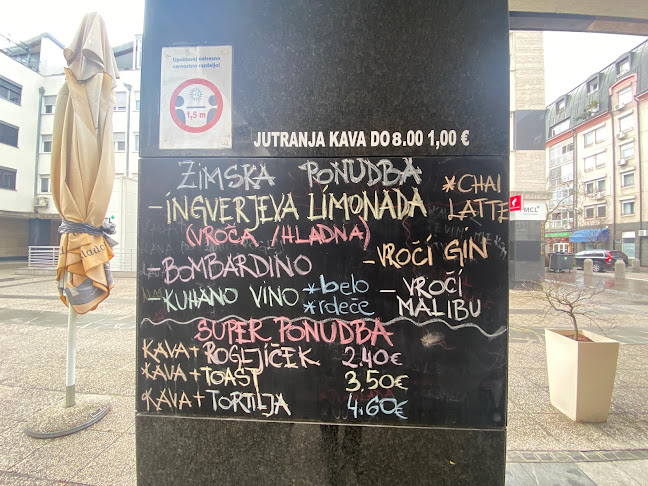 Upoštevaj ustrezno
varnostno razdaljo!
1,5 m
JUTRANJA KAVA DO 8.00 1,00 €
ZIMSKA PONUDBA
- INGVERJEVA LIMONADA
(VROČA / HLADNA)
* CHAI
LATTE
- BOMBARDINO
- VROČI GIN
- KUHANO VINO * belo
* rdeče
- VROČI
MALIBU
SUPER PONUDBA
KAVA + ROGLJIČEK 2.40 €
KAVA + TOAST 3,50 €
KAVA + TORTILJA 4.60 €
MCL